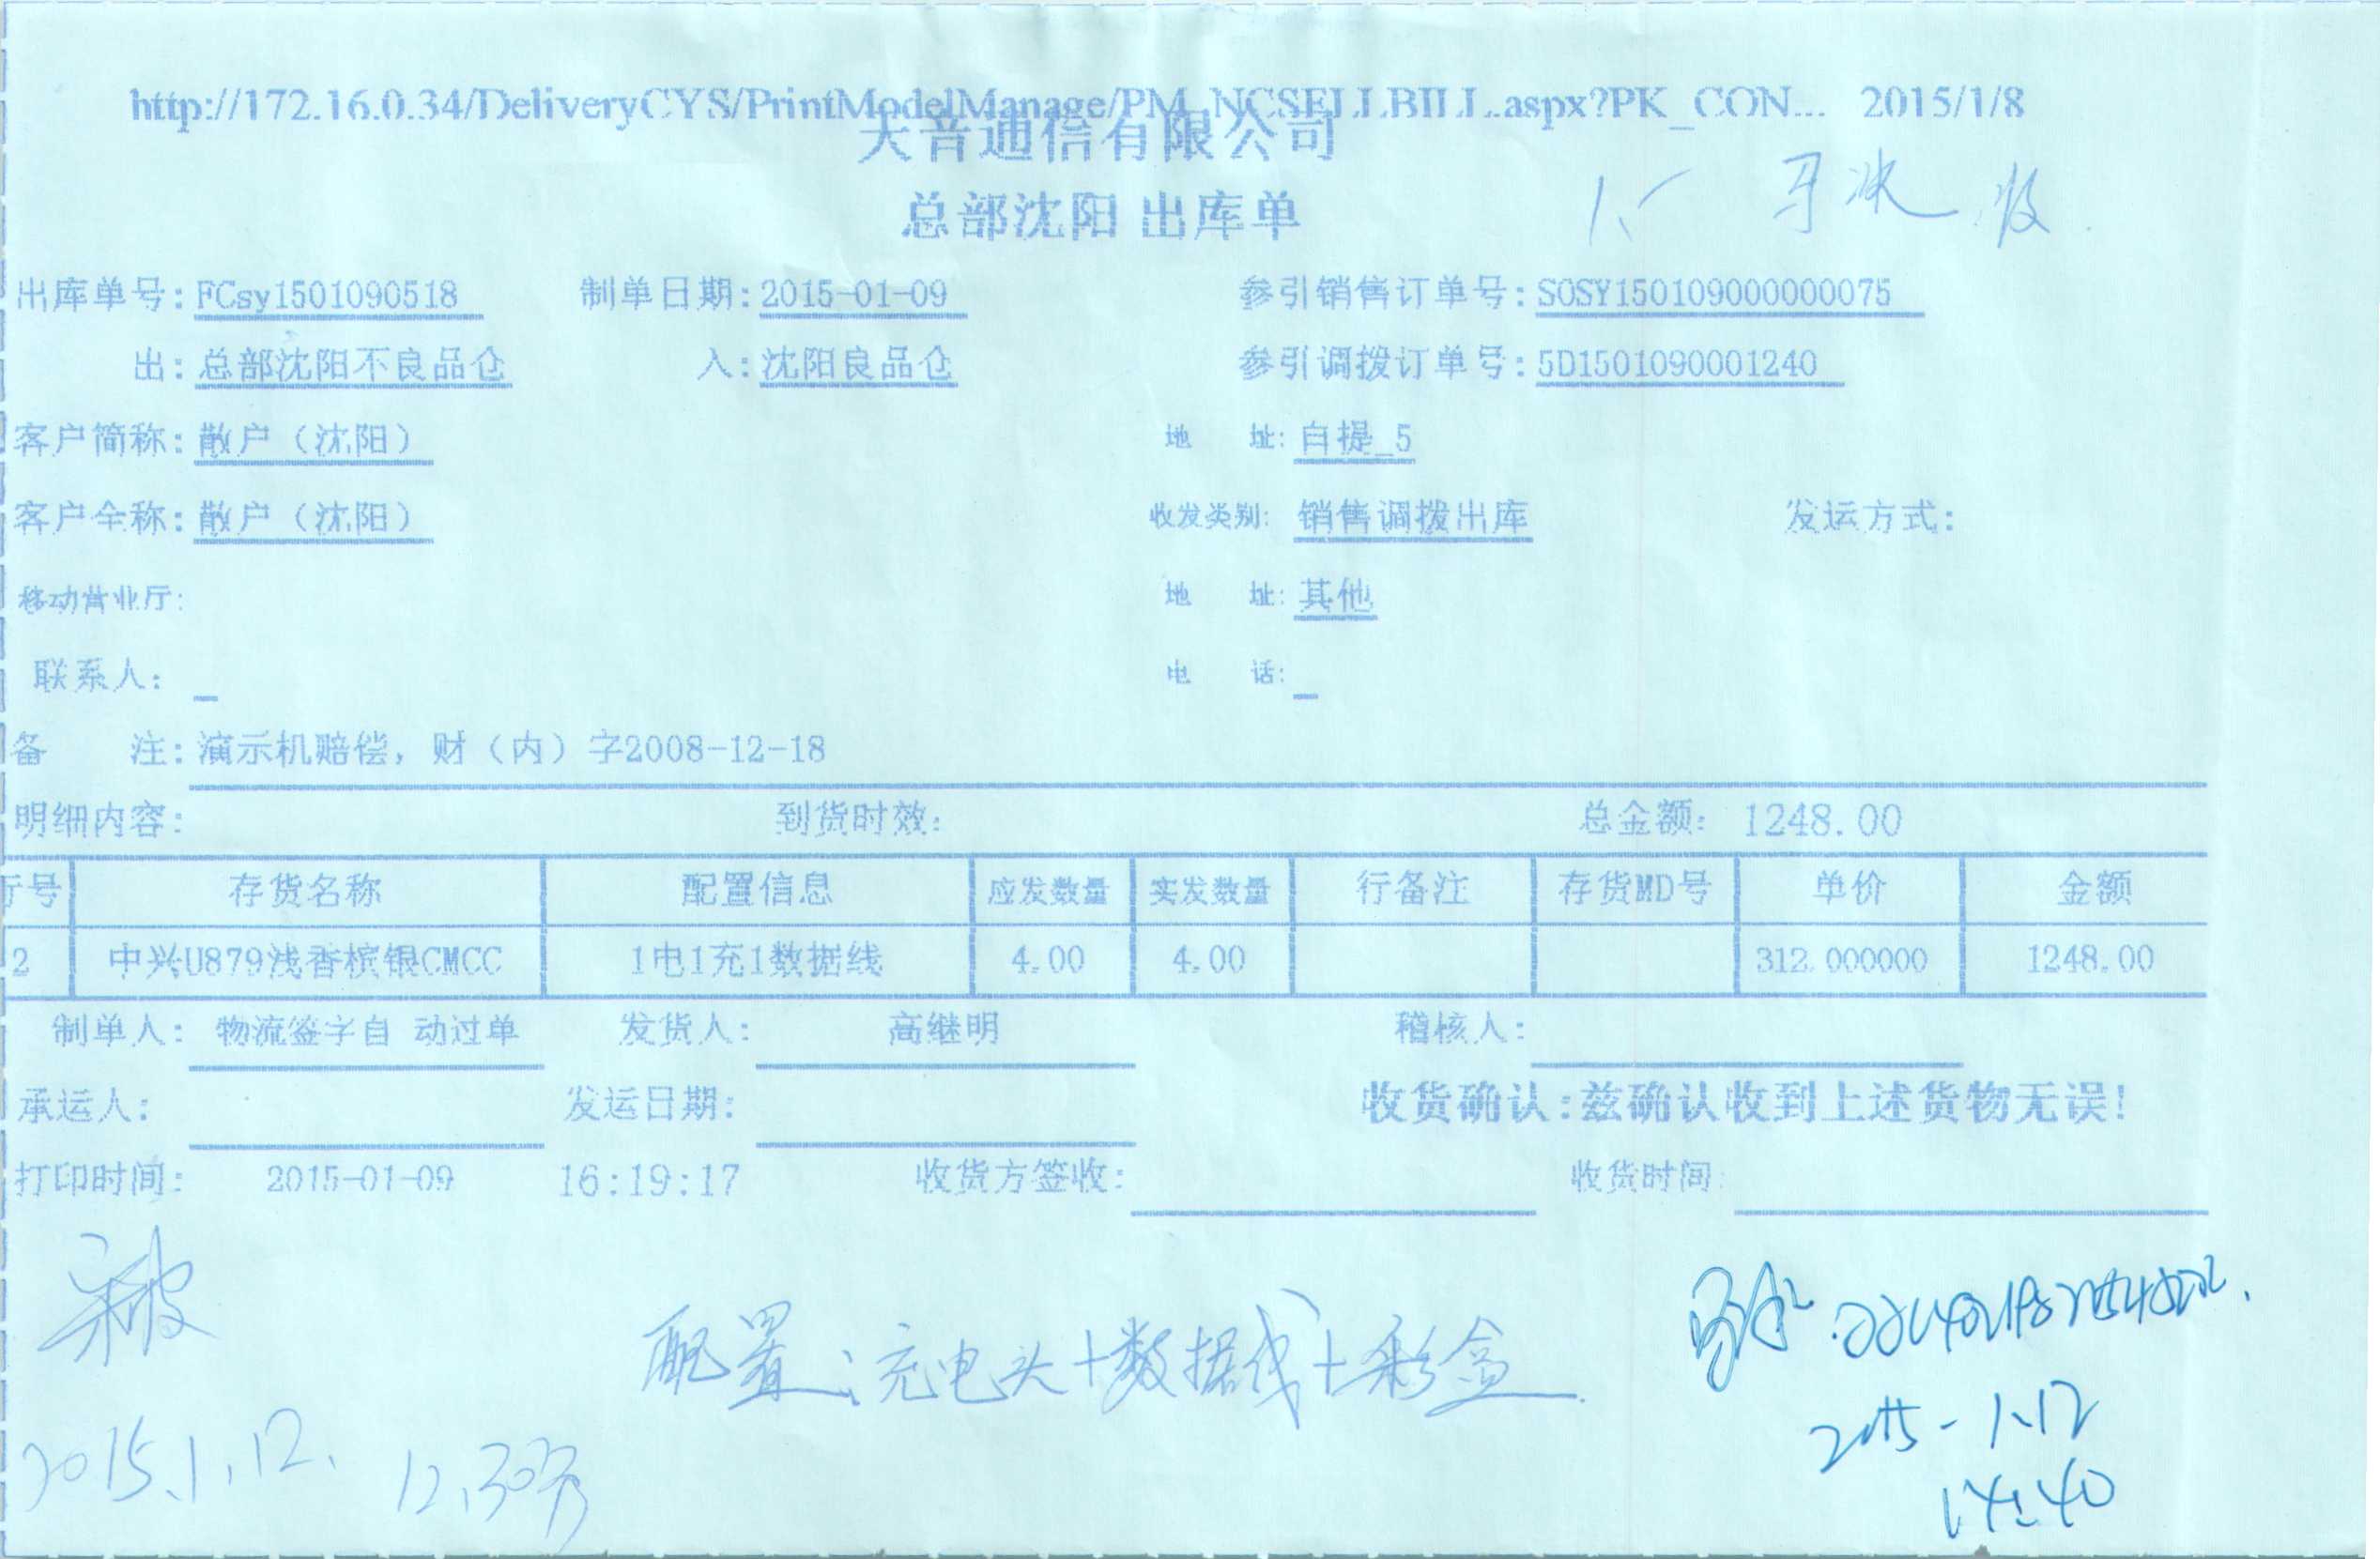 http://172.16.0.34/DeliveryCYS/PrintModelManage/PM_NCSELLBILL.aspx?PK_CON... 2015/1/8
天音通信有限公司
总部沈阳 出库单
收
出库单号:FCsy1501090518 制单日期:2015-01-09 参引销售订单号:SOSY150109000000075
出:总部沈阳不良品仓 入:沈阳良品仓 参引调拨订单号:5D1501090001240
客户简称:散户（沈阳） 地 址:自提_5
客户全称:散户（沈阳） 收发类别:销售调拨出库 发运方式:
移动营业厅: 地 址:其他
联系人: 电 话:
备 注:演示机赔偿，财（内）字2008-12-18
明细内容: 到货时效: 总金额: 1248.00
行号 存货名称 配置信息 应发数量 实发数量 行备注 存货MD号 单价 金额
2 中兴U879浅香槟银CMCC 1电1充1数据线 4.00 4.00 312.000000 1248.00
制单人: 物流签字自 动过单 发货人: 高继明 稽核人:
承运人: 发运日期: 收货确认:兹确认收到上述货物无误!
打印时间: 2015-01-09 16:19:17 收货方签收: 收货时间:
配置:充电头+数据线+彩盒
2015.1.12. 12.30
2015-1.12
14:40